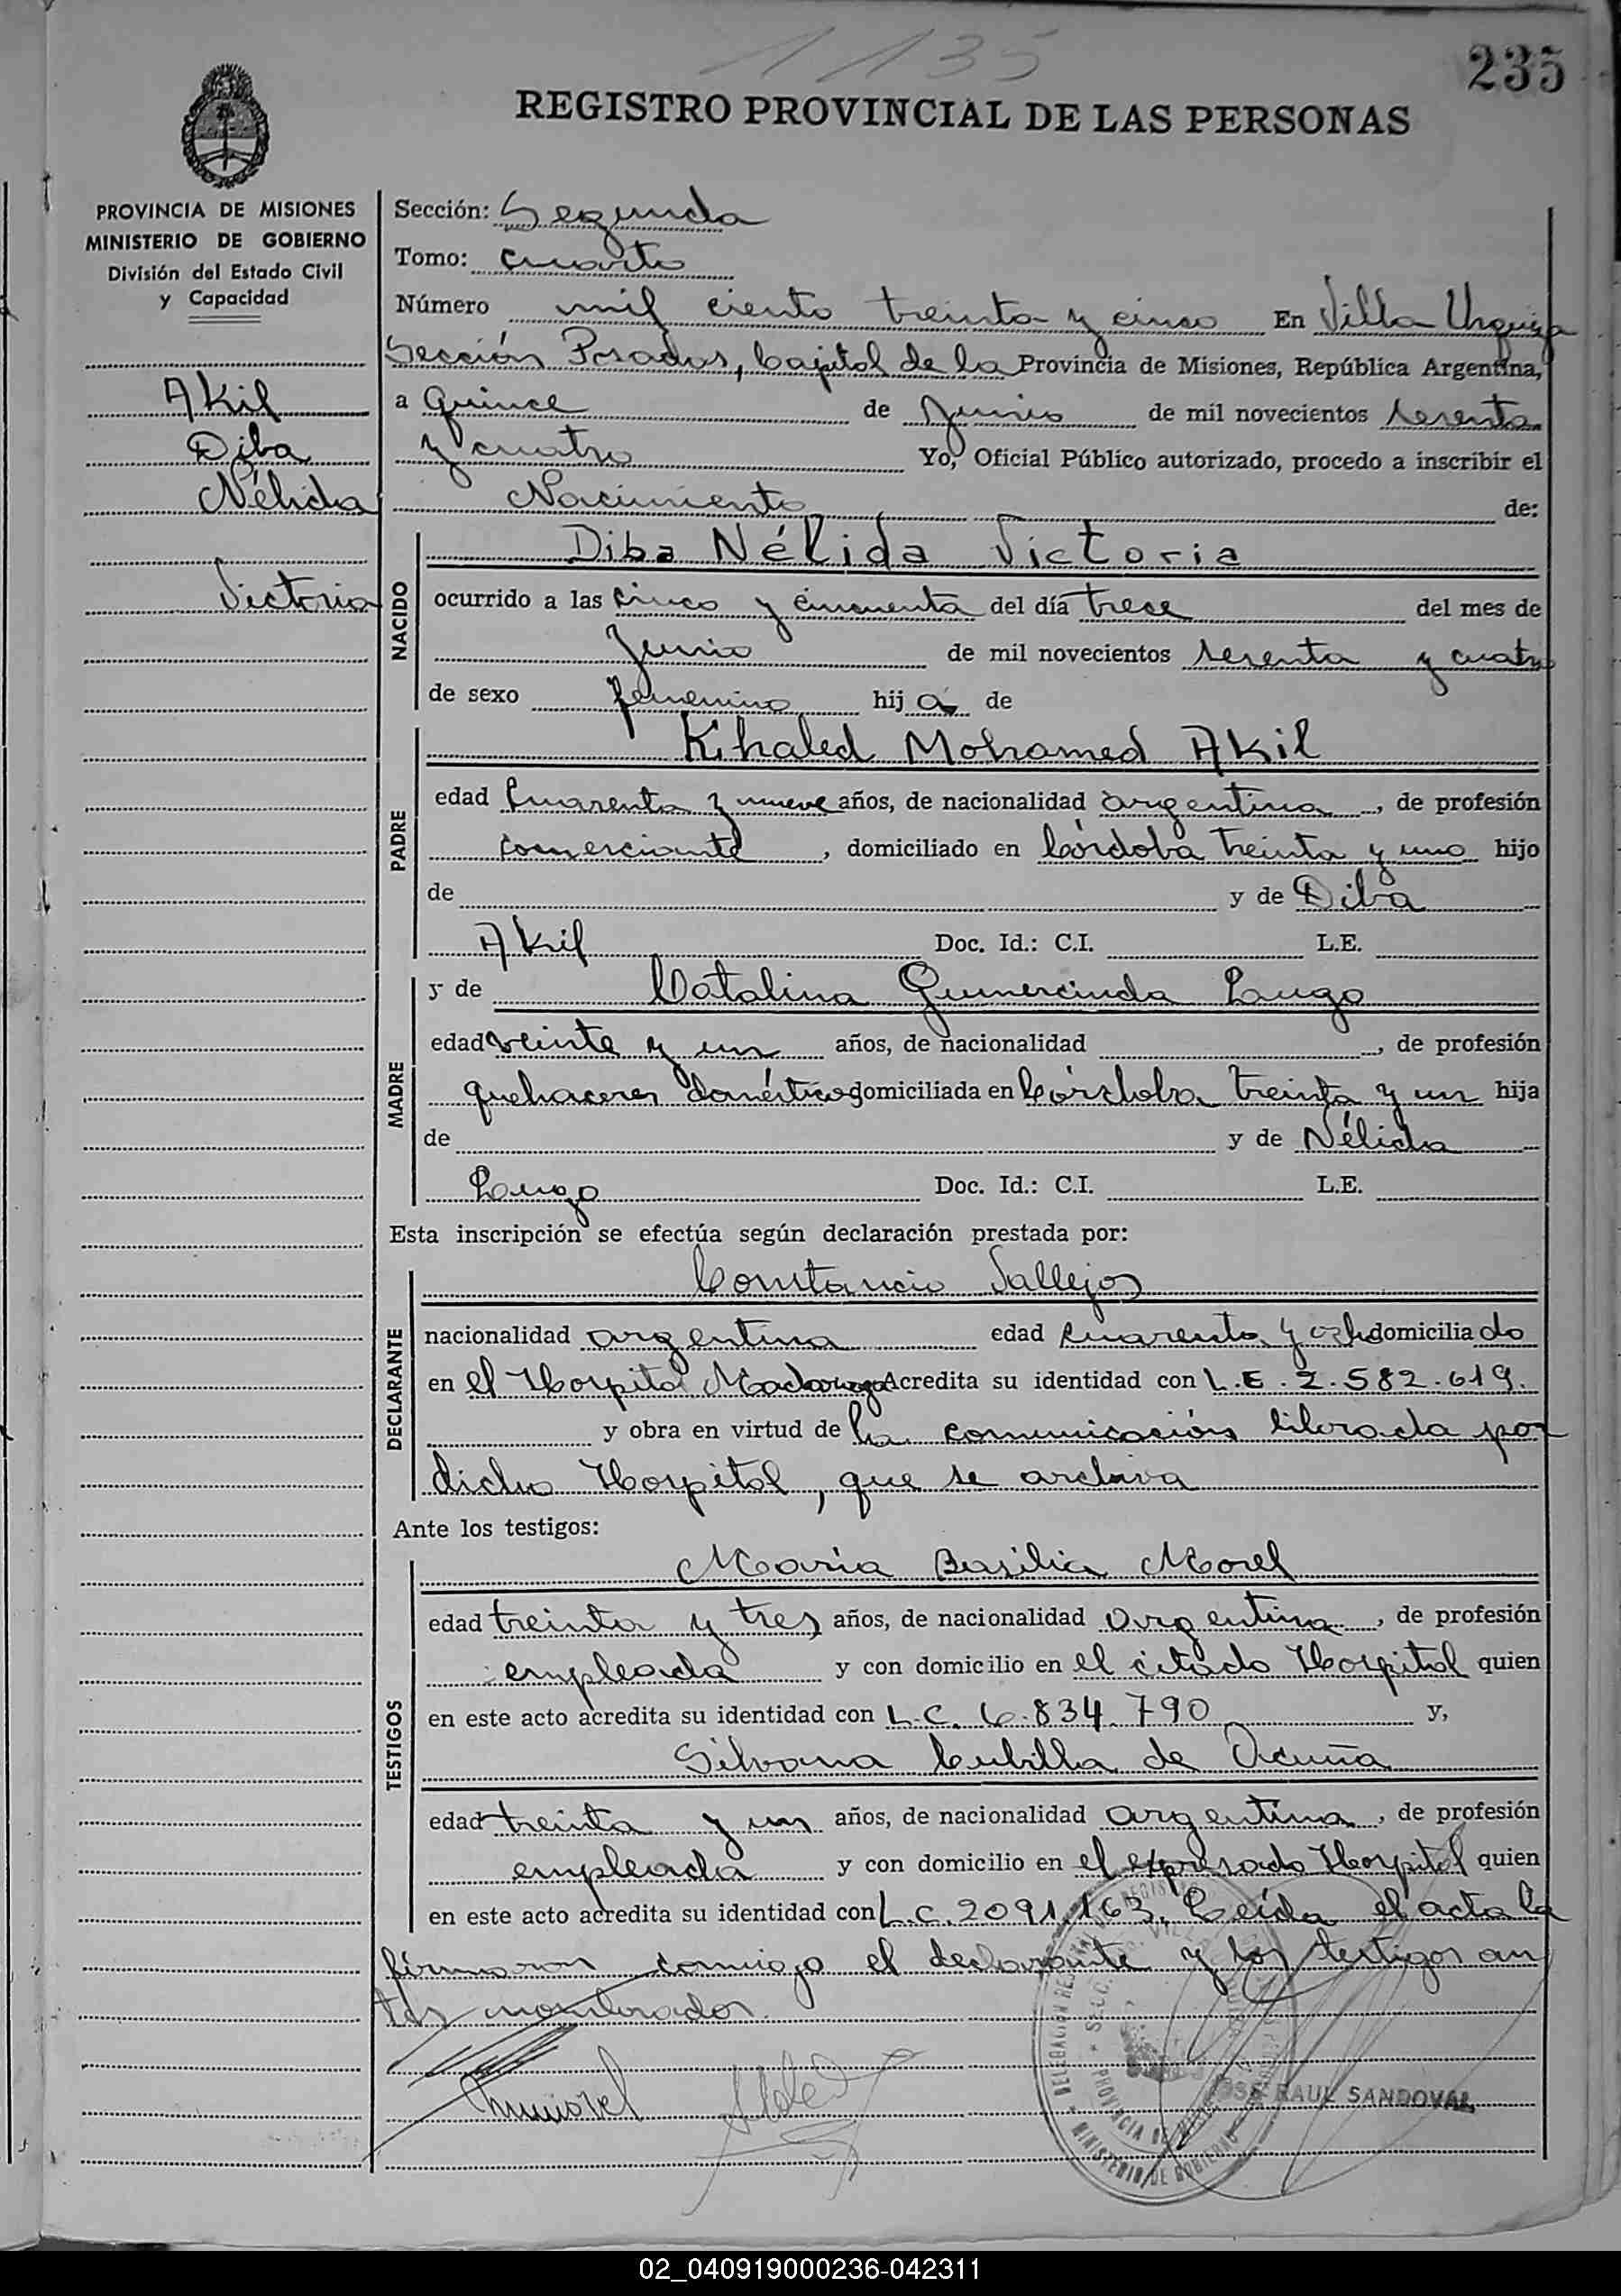 1135
235
REGISTRO PROVINCIAL DE LAS PERSONAS
PROVINCIA DE MISIONES
MINISTERIO DE GOBIERNO
División del Estado Civil
y Capacidad
Akil
Diba
Nélida
Victoria
Sección: Segunda
Tomo: cuarto
Número mil ciento treinta y cinco En Villa Urquiza
Sección Posadas, Capital de la Provincia de Misiones, República Argentina,
a Quince de Junio de mil novecientos sesenta
y cuatro Yo, Oficial Público autorizado, procedo a inscribir el
Nacimiento de:
NACIDO
Diba Nélida Victoria
ocurrido a las cinco y cincuenta del día trece del mes de
Junio de mil novecientos sesenta y cuatro
de sexo femenino hij a de
PADRE
Khaled Mohamed Akil
edad cuarenta y nueve años, de nacionalidad argentina, de profesión
comerciante, domiciliado en Córdoba treinta y uno hijo
de y de Diba
Akil Doc. Id.: C.I. L.E.
MADRE
y de Catalina Gumercinda Lugo
edad veinte y un años, de nacionalidad , de profesión
quehaceres domésticos domiciliada en Córdoba treinta y un hija
de y de Nélida
Lugo Doc. Id.: C.I. L.E.
Esta inscripción se efectúa según declaración prestada por:
DECLARANTE
Constancio Vallejos
nacionalidad argentina edad cuarenta y ocho domicilia do
en el Hospital Madariaga Acredita su identidad con L.E. 2.582.619.
y obra en virtud de la comunicación librada por
dicho Hospital, que se archiva
Ante los testigos:
TESTIGOS
María Basilia Morel
edad treinta y tres años, de nacionalidad argentina, de profesión
empleada y con domicilio en el citado Hospital quien
en este acto acredita su identidad con L.C. 6.834.790 y,
Silvana Cubilla de Acuña
edad treinta y un años, de nacionalidad argentina, de profesión
empleada y con domicilio en el expresado Hospital quien
en este acto acredita su identidad con L.C. 2091.163. Leída el acta la
firmaron conmigo el declarante y los testigos an
tes nombrados.
RAUL SANDOVAL
02_040919000236-042311